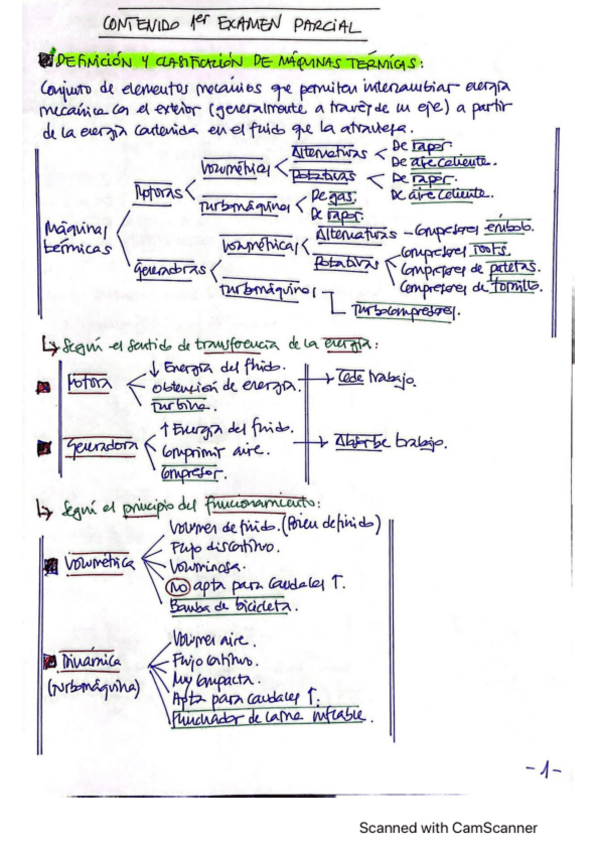 CONTENIDO 1er EXAMEN PARCIAL
DEFINICIÓN Y CLASIFICACIÓN DE MÁQUINAS TÉRMICAS:
Conjunto de elementos mecánicos que permiten intercambiar energía
mecánica con el exterior (generalmente a través de un eje) a partir
de la energía contenida en el fluido que la atraviesa.
Máquinas térmicas
Motoras
Volumétricas
Alternativas
De vapor.
De aire caliente.
Rotativas
De vapor.
De aire caliente.
Turbomáquinas
De gas.
De vapor.
Generadoras
Volumétricas
Alternativas - Compresores émbolo.
Rotativas
Compresores roots.
Compresores de paletas.
Compresores de tornillo.
Turbomáquinas
Turbocompresores.
↳ Según el sentido de transferencia de la energía:
Motora
↓ Energía del fluido.
Obtención de energía.
Turbina.
→ Cede trabajo.
Generadora
↑ Energía del fluido.
Comprimir aire.
Compresor.
→ Absorbe trabajo.
↳ Según el principio del funcionamiento:
Volumétrica
Volumen de fluido. (Bien definido)
Flujo discontinuo.
Voluminosa.
No apta para caudales ↑.
Bomba de bicicleta.
Dinámica
(turbomáquina)
Volumen aire.
Flujo continuo.
Muy compacta.
Apta para caudales ↑.
Hinchador de cama inflable.
-1-
Scanned with CamScanner